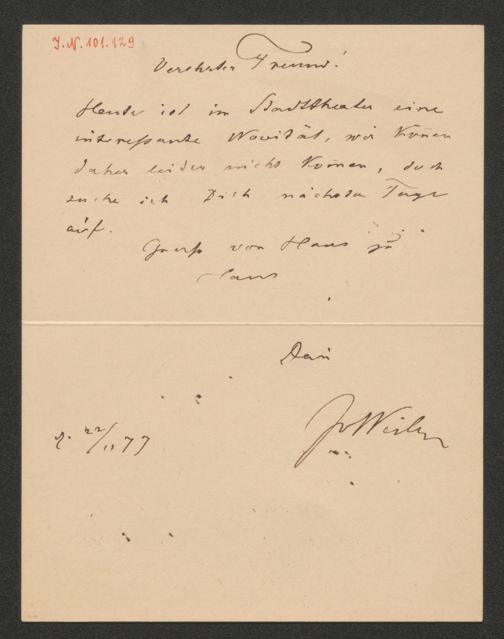 J.N. 101.129
Verehrter Freund!
Heute ist im Stadttheater eine
interessante Novität, wir können
daher leider nicht kommen, doch
suche ich Dich nächster Tage
auf.
Gruß von Haus zu
Haus
Dein
22/11 77